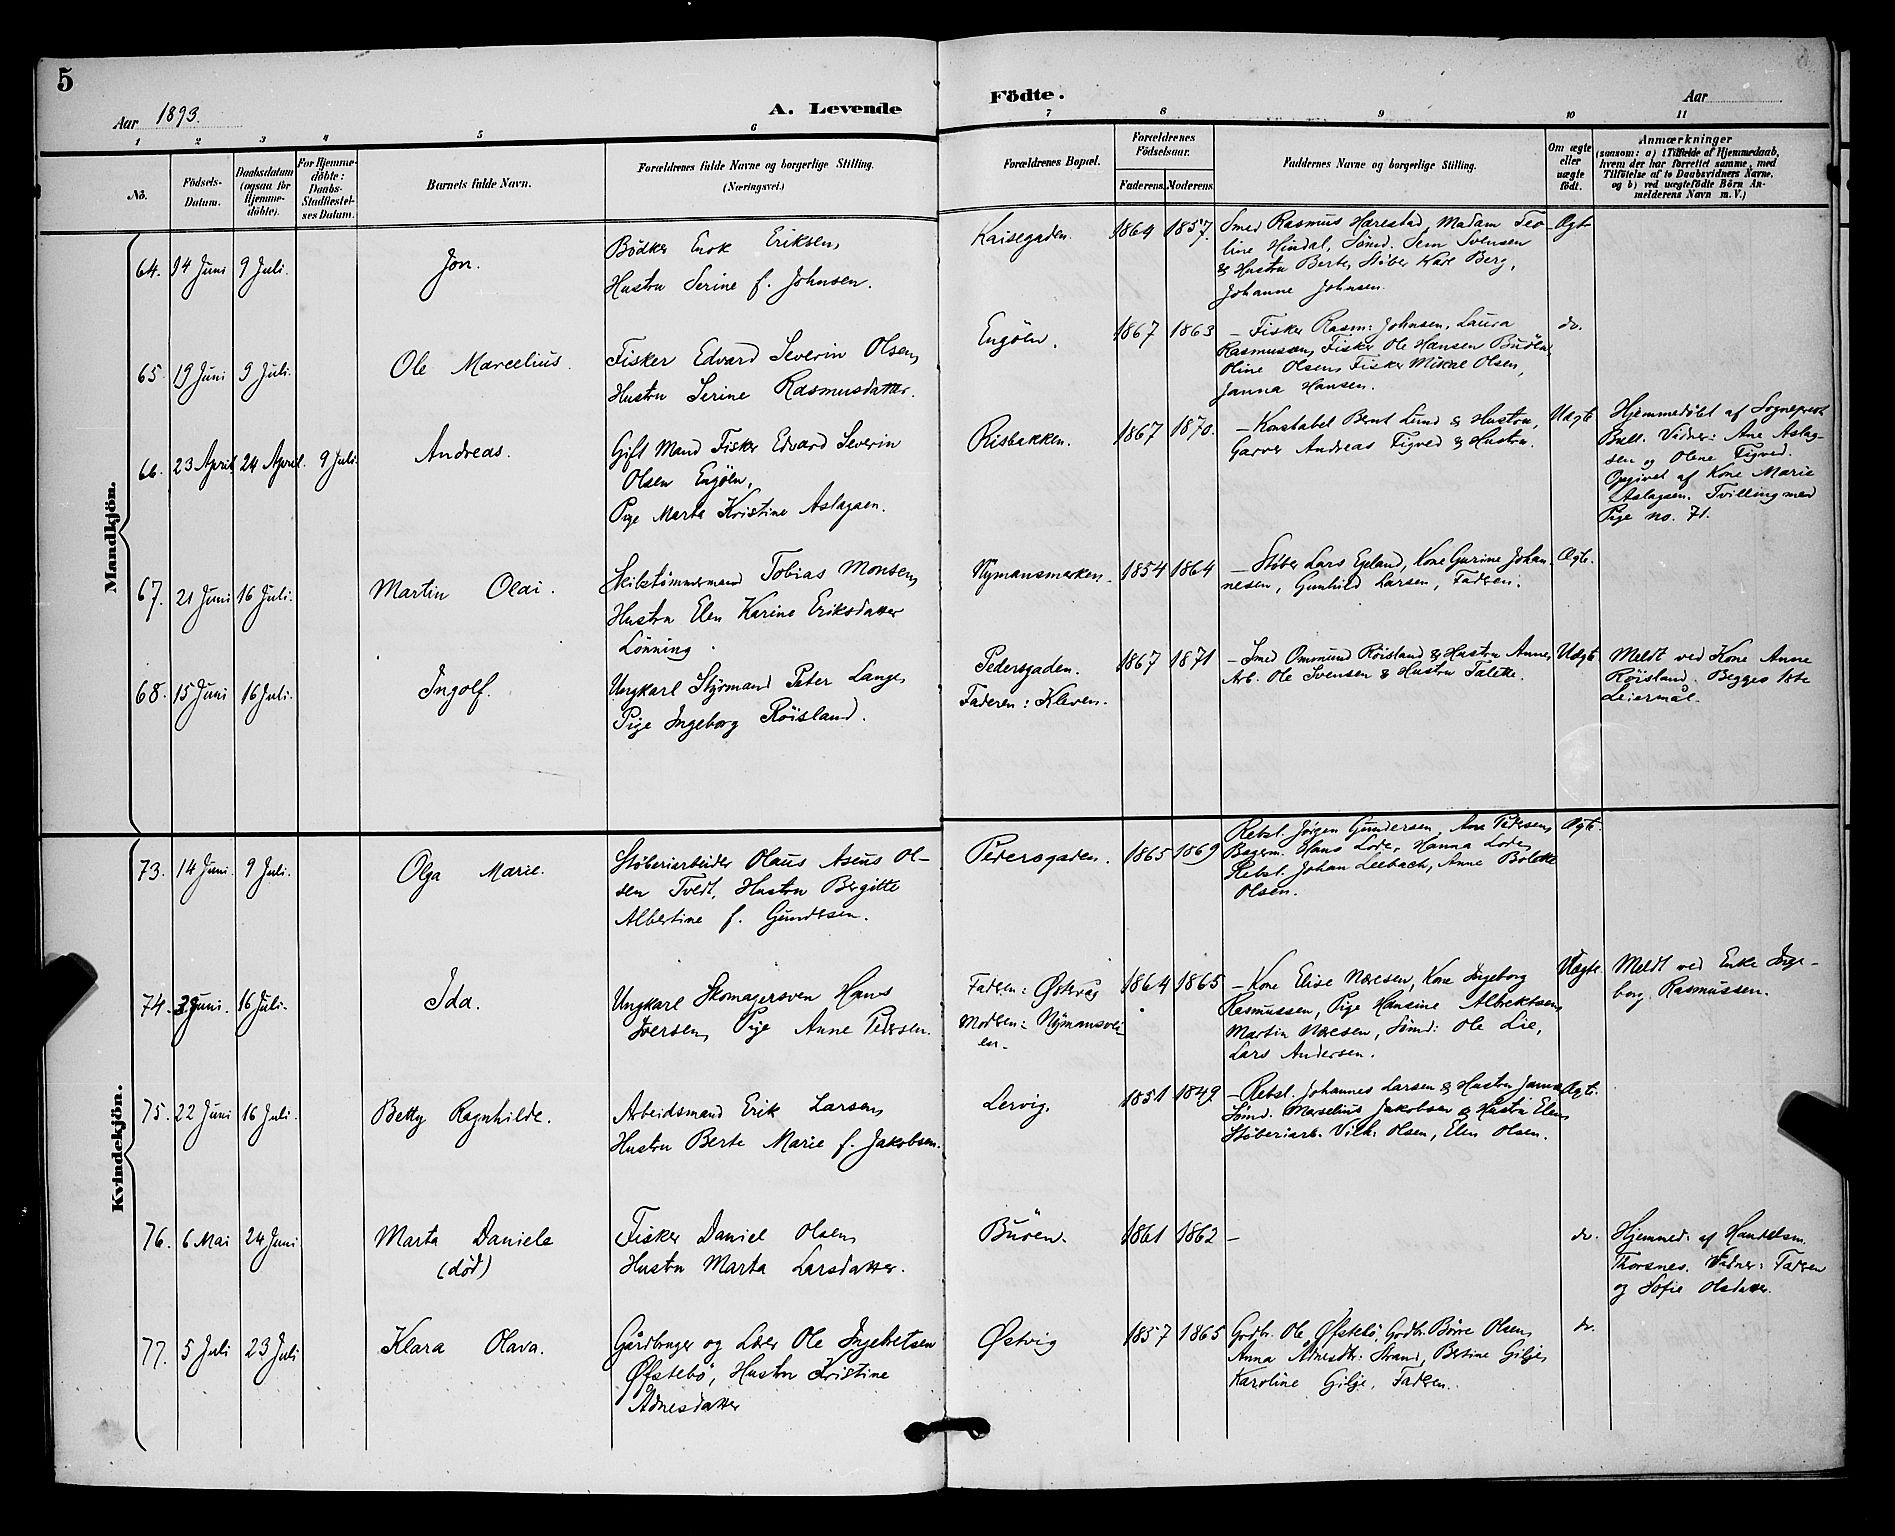 5
Aar 1893.
A. Levende
Födte.
Aar
1 2 3 4 5 6 7 8 9 10 11
No.
Födsels-
Datum.
Daabsdatum
(ogsaa for
Hjemme-
döbte).
For Hjemme-
döbte:
Daabs-
Stadfæstel-
ses Datum.
Barnets fulde Navn.
Forældrenes fulde Navne og borgerlige Stilling.
(Næringsvei.)
Forældrenes Bopæl.
Forældrenes
Födselsaar.
Faderens. Moderens.
Faddernes Navne og borgerlige Stilling.
Om ægte
eller
uægte
födt.
Anmærkninger
(saasom: a) i Tilfælde af Hjemmedaab,
hvem der har forrettet samme, med
Tilføielse af to Daabsvidners Navne,
og b) ved uægtefödte Börn An-
melderens Navn m. V.)
Mandkjön.
64. 14 Juni 9 Juli.
Jon.
Bødker Enok Eriksen,
Hustru Serine f. Johnsen.
Kaisegaden.
1864 1857.
Smed Rasmus Hærestad, Madam Teo-
line Hindal, Sømd. Sem Svensen
& Hustru Berte, Støber Karl Berg,
Johanne Johnsen.
Ægt
65. 19 Juni 9 Juli.
Ole Marcelius.
Fisker Edvard Severin Olsen,
Hustru Serine Rasmusdatter.
Engöen.
1867 1863
– Fisker Rasm: Johnsen, Laura
Rasmussen, Fisker Ole Hansen Buöen,
Oline Olsen, Fisker Mikal Olsen,
Janna Hansen.
do.
66. 23 April 24 April. 9 Juli.
Andreas.
Gift Mand Fisker Edvard Severin
Olsen Engöen,
Pige Marta Kristine Aslagsen.
Risbakken.
1867 1870.
– Konstabel Bernt Lund & Hustru,
Garver Andreas Tigved & Hustru.
Uægt
Hjemmedöbt af Sogneprest
Bull. Vidner: Ane Aslag-
sen og Olene Tigved.
Opgivet af Kone Marie
Aslagsen. Tvilling med
Pige no. 71.
67. 21 Juni 16 Juli.
Martin Olai.
Skibstømmermand Tobias Monsen,
Hustru Elen Karine Eriksdatter
Lönning.
Nymansmarken.
1854 1864
– Støber Lars Egeland, Kone Gurine Johan-
nesen, Gunhild Larsen, Faderen.
Ægte.
68. 15 Juni 16 Juli.
Ingolf.
Ungkarl Styrmand Peter Lange,
Pige Ingeborg Röisland.
Pedersgaden.
Faderen: Kleven.
1867 1871
– Smed Ommund Röisland & Hustru Anne,
Arb. Ole Svensen & Hustru Taletke.
Uægt.
Meldt ved Kone Anne
Röisland. Begges 1ste
Leiermål.
Kvindekjön.
73. 14 Juni. 9 Juli.
Olga Marie.
Støberiarbeider Olaus Aseus Ol-
sen Tvedt, Hustru Bergitte
Albertine f. Gundersen.
Pedersgaden.
1865 1869
Rebsl. Jörgen Gundersen, Ane Pedersen,
Bagerm. Hans Lode, Hanna Lode,
Rebsl. Johan Leebach, Anne Bolette
Olsen.
Ægte.
74. Juni. 16 Juli.
Ida.
Ungkarl Skomagersven Hans
Iversen, Pige Anne Pedersen.
Faderen: Østervåg
Moderen: Nymansvei-
en.
1864 1865
– Kone Elise Næesen, Kone Ingeborg
Rasmussen, Pige Hansine Albrektsen,
Martin Næesen, Sømd: Ole Lie,
Lars Andersen.
Uægte.
Meldt ved Enke Inge-
borg Rasmussen.
75. 22 Juni 16 Juli.
Betty Ragnhilde.
Arbeidsmand Erik Larsen,
Hustru Berte Marie f. Jakobsen.
Lervig.
1851 1849.
– Rebsl. Johannes Larsen & Hustru Janna,
Sømd. Marselius Jakobsen & Hustru Elen,
Støberiarb. Vilh. Olsen, Elen Olsen.
Ægte.
76. 6 Mai 24 Juni
Marta Daniele
(død)
Fisker Daniel Olsen,
Hustru Marta Larsdatter.
Buöen.
1861 1862 –
do.
Hjemmed. af Handelsm.
Thorsnes. Vidner: Faderen
og Sofie Olsdatter.
77. 5 Juli 23 Juli
Klara Olava.
Gårdbruger og Lærer Ole Ingebretsen
Øfstebö, Hustru Kristine
Adnesdatter
Østvig
1857 1865
Grdbr. Ole Øfstebö, Grdbr. Börre Olsen,
Anna Adnesdtr: Strand, Bertine Gilje,
Karoline Gilje, Faderen.
do.